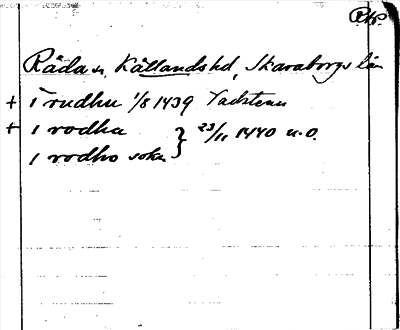 Råda sn, Kållandshd, Skaraborgs län
+ i rudhu 1/8 1439 Vadstena
+ i rodha } 23/11 1440 u.o.
i rodho sokn